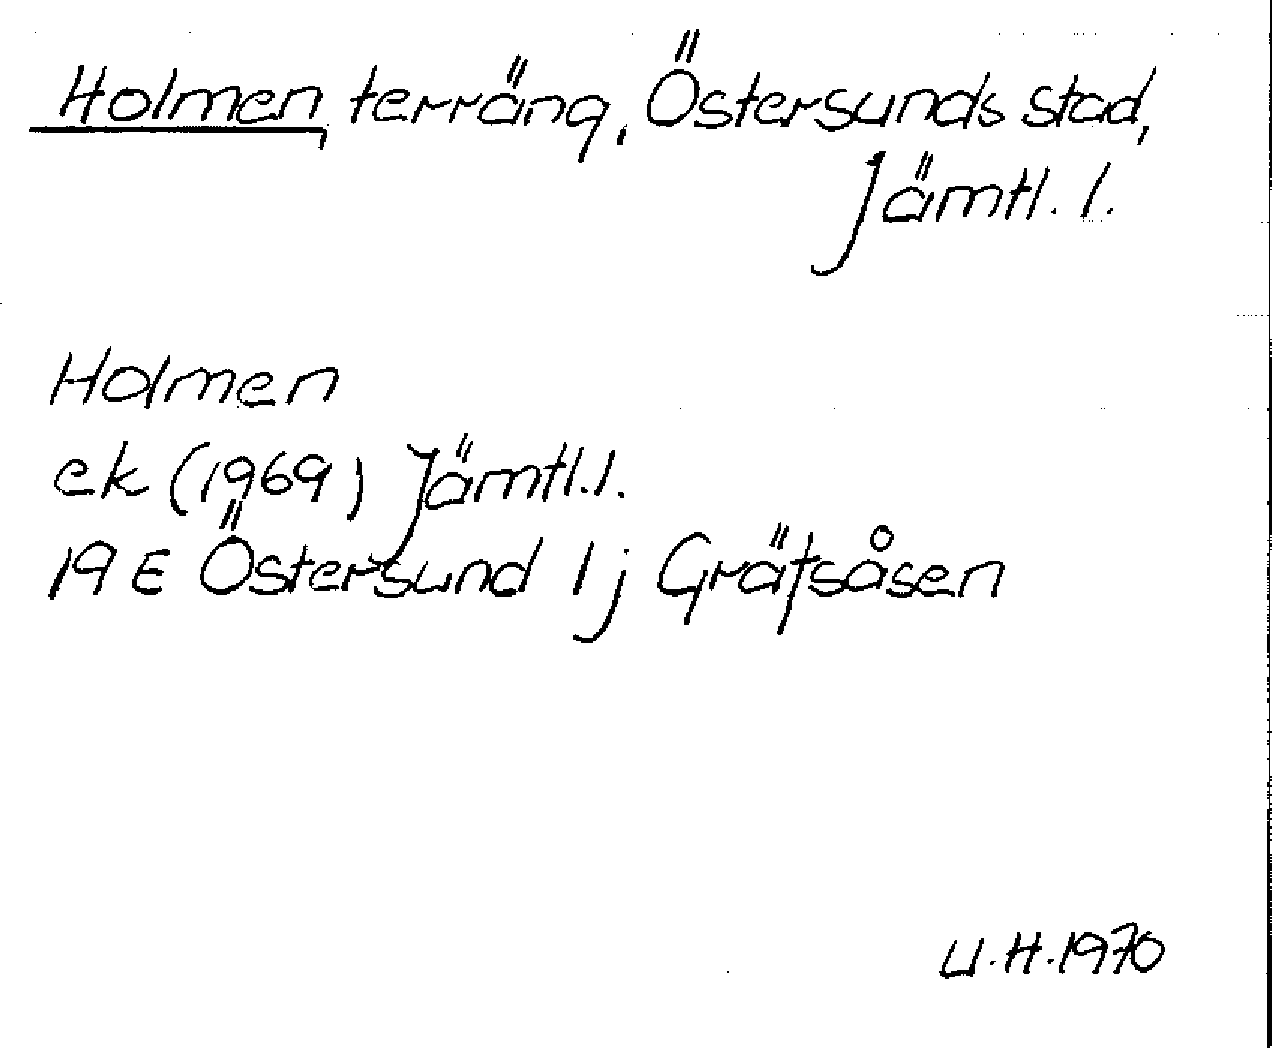 Holmen, terräng, Östersunds stad,
Jämtl. l.
Holmen
ek (1969) Jämtl.l.
19 E Östersund 1 j Gräfsåsen
U.H.1970